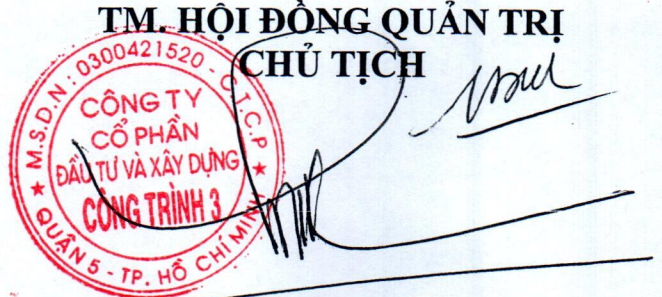 TM. HỘI ĐỒNG QUẢN TRỊ
CHỦ TỊCH
M.S.D.N: 0300421520 - C.T.C.P
CÔNG TY
CỔ PHẦN
ĐẦU TƯ VÀ XÂY DỰNG
CÔNG TRÌNH 3
QUẬN 5 - TP. HỒ CHÍ MINH